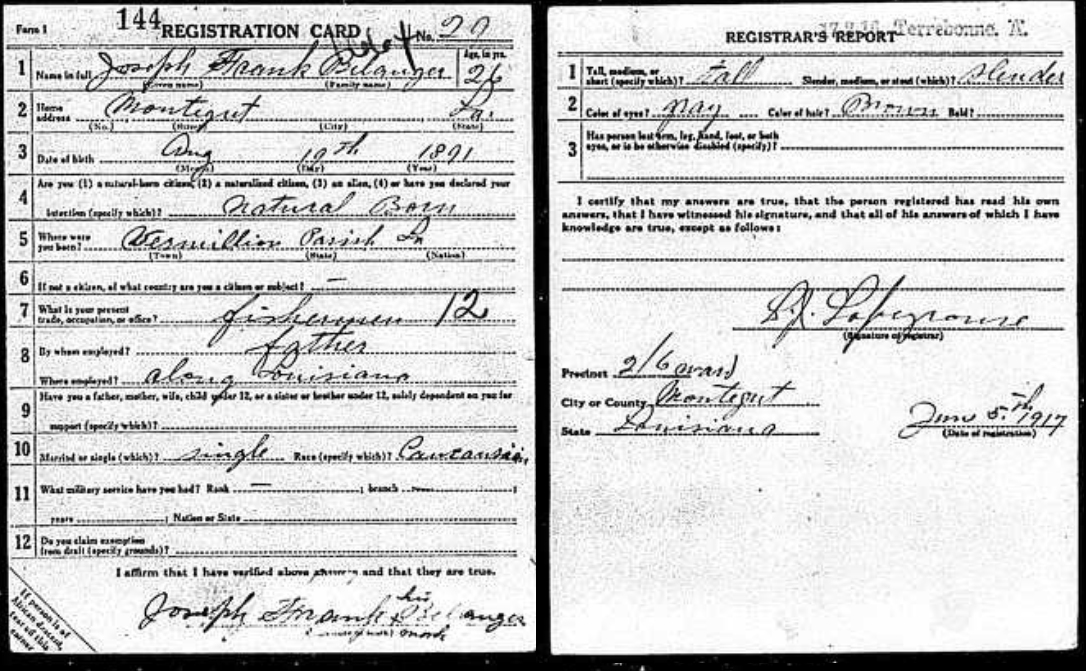 Form 1 144 REGISTRATION CARD No. 29
1 Name in full Joseph Frank Belanger Age, in yrs. 26
(Given name) (Family name)
2 Home address Montegut La.
(No.) (Street) (City) (State)
3 Date of birth Aug 19th 1891
(Month) (Day) (Year)
4 Are you (1) a natural-born citizen, (2) a naturalized citizen, (3) an alien, (4) or have you declared your
intention (specify which)? Natural Born
5 Where were you born? Vermillion Parish La
(Town) (State) (Nation)
6 If not a citizen, of what country are you a citizen or subject? —
7 What is your present trade, occupation, or office? fishermen 12
8 By whom employed? father
Where employed? along Louisiana
9 Have you a father, mother, wife, child under 12, or a sister or brother under 12, solely dependent on you for
support (specify which)?
10 Married or single (which)? single Race (specify which)? Caucausian
11 What military service have you had? Rank — ; branch — ;
years ; Nation or State
12 Do you claim exemption from draft (specify grounds)?
I affirm that I have verified above answers and that they are true.
his
Joseph Frank x Belanger
mark
If person is of
African descent,
tear off this
corner
17.9.16 Terrebonne. A.
REGISTRAR'S REPORT
1 Tall, medium, or short (specify which)? Tall Slender, medium, or stout (which)? Slender
2 Color of eyes? gray Color of hair? Brown Bald?
3 Has person lost arm, leg, hand, foot, or both
eyes, or is he otherwise disabled (specify)?
I certify that my answers are true, that the person registered has read his own
answers, that I have witnessed his signature, and that all of his answers of which I have
knowledge are true, except as follows:
(Signature of registrar)
Precinct 2/6 ward
City or County Montegut
State Louisiana June 5th, 1917
(Date of registration)